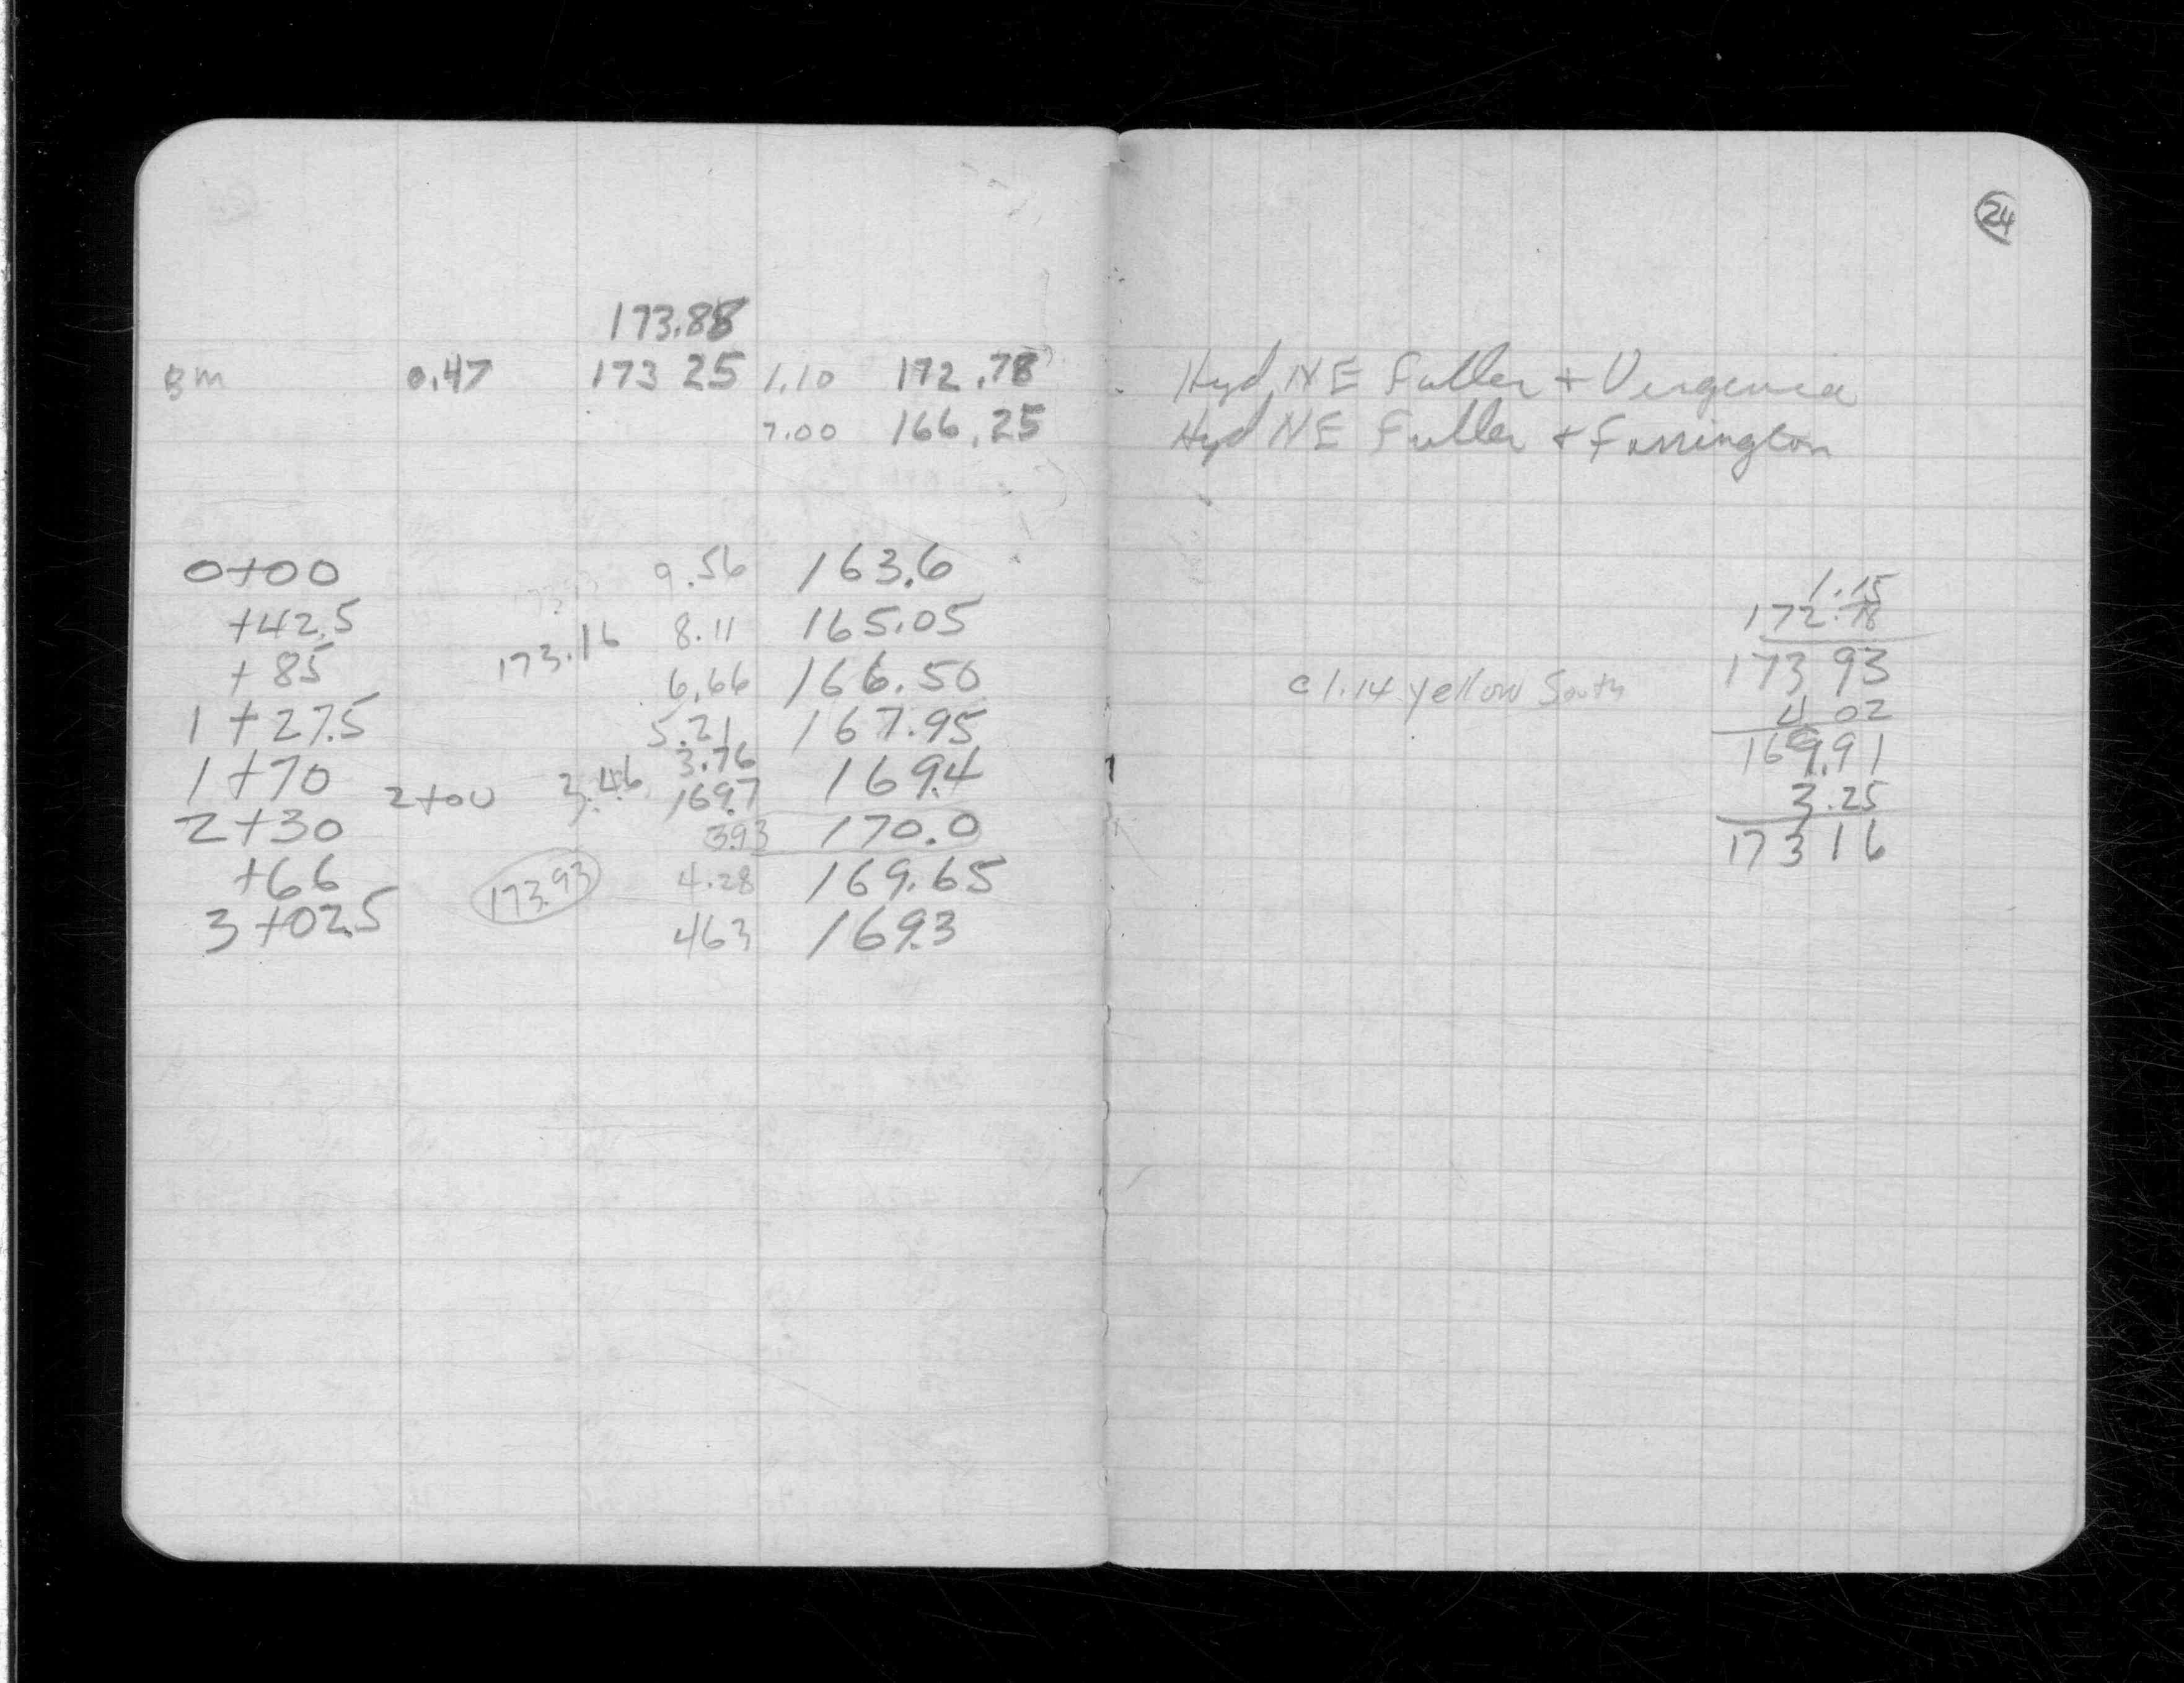 24
173.88
BM 0.47 173 25 1.10 172.78
7.00 166.25
0+00 9.56 163.6
+42.5 8.11 165.05
+85 173.16 6.66 166.50
1+27.5 5.21 167.95
1+70 3.76 169.4
2+00 3.46 169.7
2+30 3.93 170.0
+66 4.28 169.65
173.93
3+02.5 463 169.3
Hyd NE Fuller + Virginia
Hyd NE Fuller + Farrington
c 1.14 yellow South
1.15
172.78
173 93
4 02
169.91
3.25
173 16